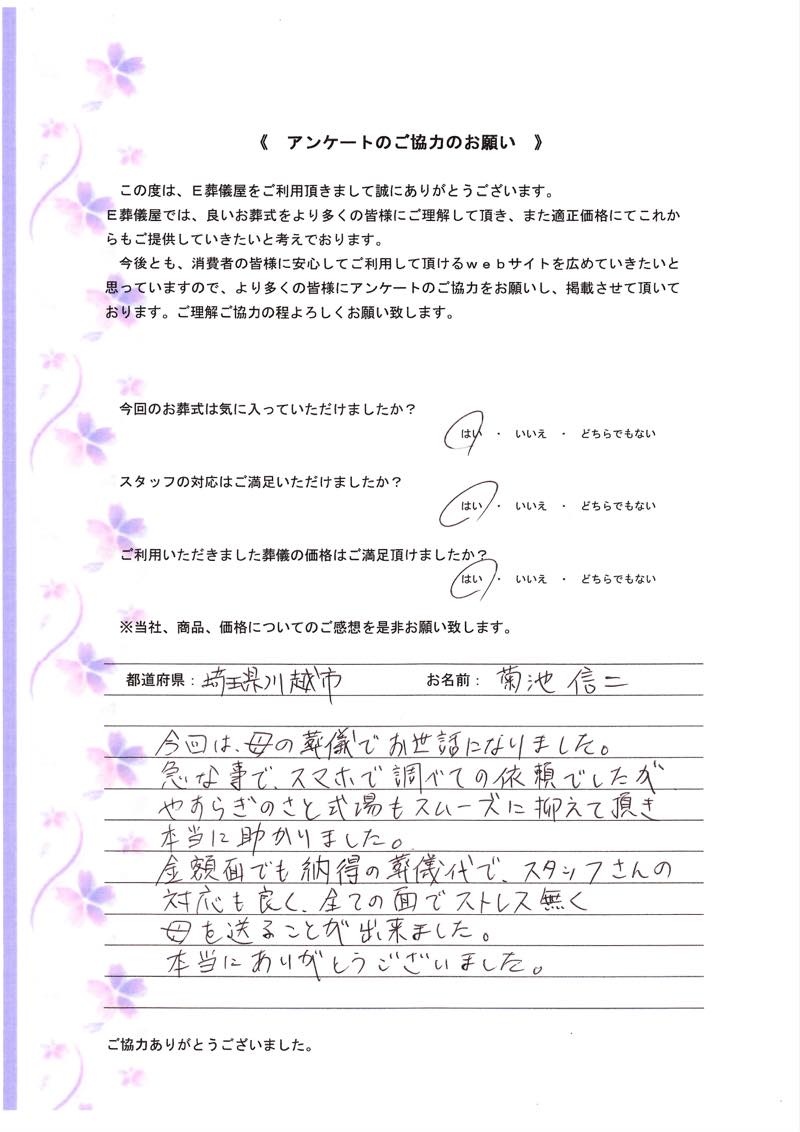 《　アンケートのご協力のお願い　》
この度は、Ｅ葬儀屋をご利用頂きまして誠にありがとうございます。
Ｅ葬儀屋では、良いお葬式をより多くの皆様にご理解して頂き、また適正価格にてこれか
らもご提供していきたいと考えでおります。
今後とも、消費者の皆様に安心してご利用して頂けるｗｅｂサイトを広めていきたいと
思っていますので、より多くの皆様にアンケートのご協力をお願いし、掲載させて頂いて
おります。ご理解ご協力の程よろしくお願い致します。
今回のお葬式は気に入っていただけましたか？
はい　・　いいえ　・　どちらでもない
スタッフの対応はご満足いただけましたか？
はい　・　いいえ　・　どちらでもない
ご利用いただきました葬儀の価格はご満足頂けましたか？
はい　・　いいえ　・　どちらでもない
※当社、商品、価格についてのご感想を是非お願い致します。
都道府県：埼玉県川越市　お名前：菊池信二
今回は、母の葬儀でお世話になりました。
急な事で、スマホで調べての依頼でしたが
やすらぎのさと式場もスムーズに抑えて頂き
本当に助かりました。
金額面でも納得の葬儀代で、スタッフさんの
対応も良く、全ての面でストレス無く
母を送ることが出来ました。
本当にありがとうございました。
ご協力ありがとうございました。